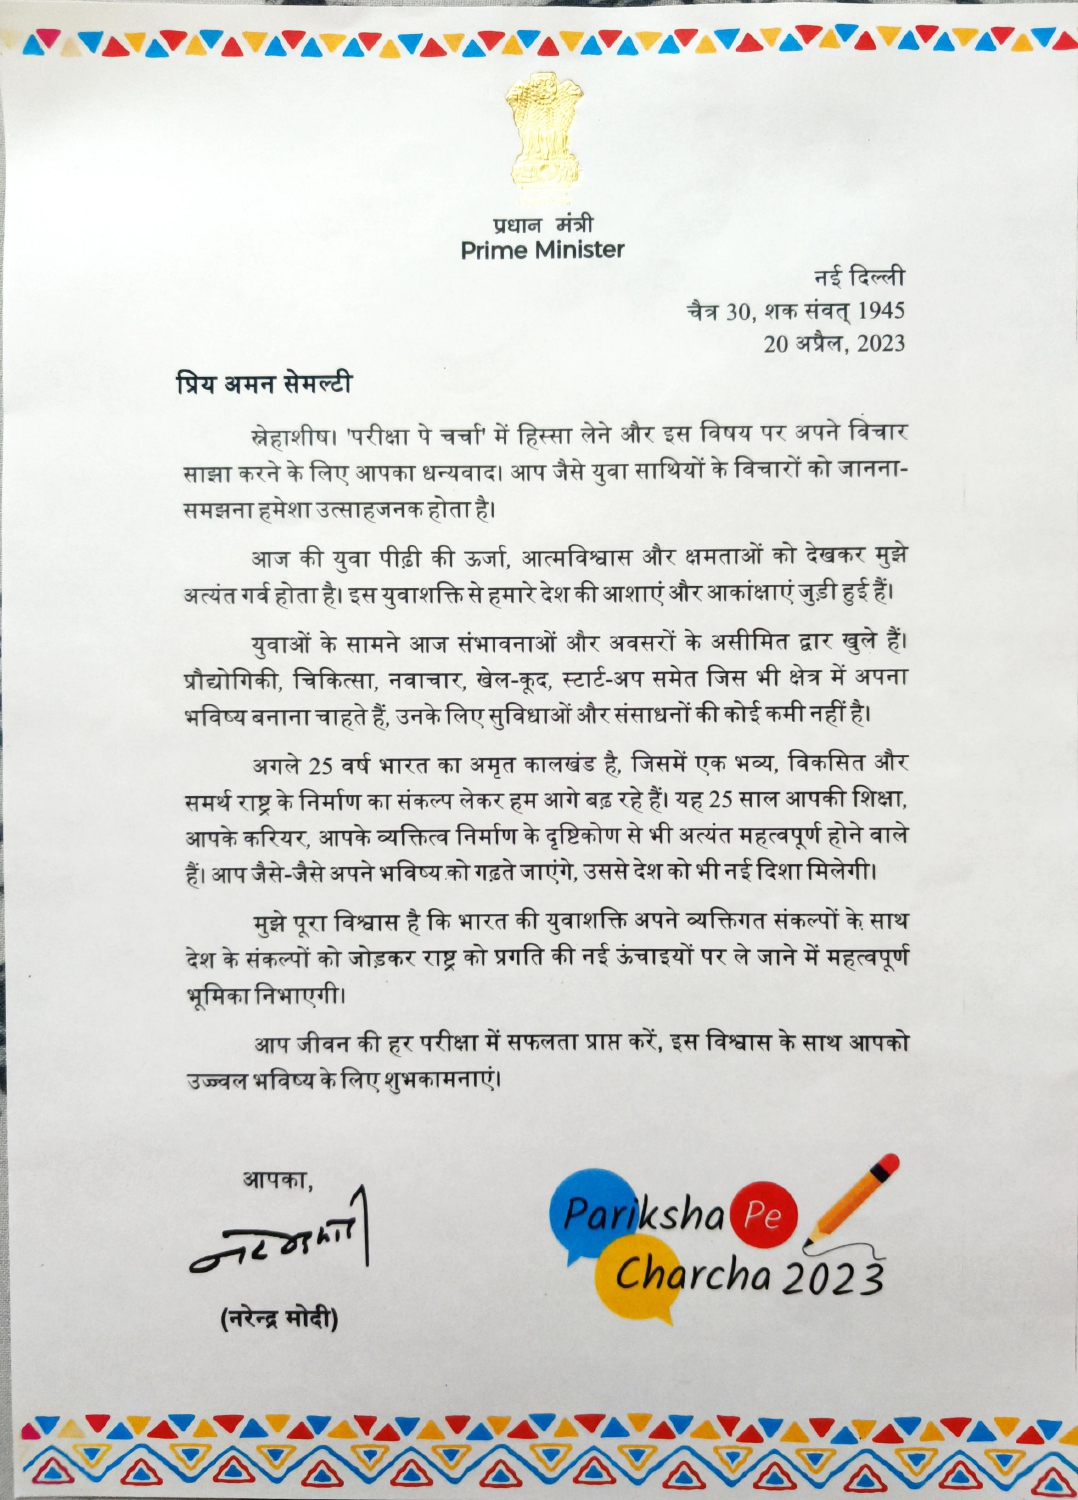 प्रधान मंत्री
Prime Minister
नई दिल्ली
चैत्र 30, शक संवत् 1945
20 अप्रैल, 2023
प्रिय अमन सेमल्टी
स्नेहाशीष। 'परीक्षा पे चर्चा' में हिस्सा लेने और इस विषय पर अपने विचार
साझा करने के लिए आपका धन्यवाद। आप जैसे युवा साथियों के विचारों को जानना-
समझना हमेशा उत्साहजनक होता है।
आज की युवा पीढ़ी की ऊर्जा, आत्मविश्वास और क्षमताओं को देखकर मुझे
अत्यंत गर्व होता है। इस युवाशक्ति से हमारे देश की आशाएं और आकांक्षाएं जुड़ी हुई हैं।
युवाओं के सामने आज संभावनाओं और अवसरों के असीमित द्वार खुले हैं।
प्रौद्योगिकी, चिकित्सा, नवाचार, खेल-कूद, स्टार्ट-अप समेत जिस भी क्षेत्र में अपना
भविष्य बनाना चाहते हैं, उनके लिए सुविधाओं और संसाधनों की कोई कमी नहीं है।
अगले 25 वर्ष भारत का अमृत कालखंड है, जिसमें एक भव्य, विकसित और
समर्थ राष्ट्र के निर्माण का संकल्प लेकर हम आगे बढ़ रहे हैं। यह 25 साल आपकी शिक्षा,
आपके करियर, आपके व्यक्तित्व निर्माण के दृष्टिकोण से भी अत्यंत महत्वपूर्ण होने वाले
हैं। आप जैसे-जैसे अपने भविष्य को गढ़ते जाएंगे, उससे देश को भी नई दिशा मिलेगी।
मुझे पूरा विश्वास है कि भारत की युवाशक्ति अपने व्यक्तिगत संकल्पों के साथ
देश के संकल्पों को जोड़कर राष्ट्र को प्रगति की नई ऊंचाइयों पर ले जाने में महत्वपूर्ण
भूमिका निभाएगी।
आप जीवन की हर परीक्षा में सफलता प्राप्त करें, इस विश्वास के साथ आपको
उज्ज्वल भविष्य के लिए शुभकामनाएं।
आपका,
(नरेन्द्र मोदी)
Pariksha Pe
Charcha 2023